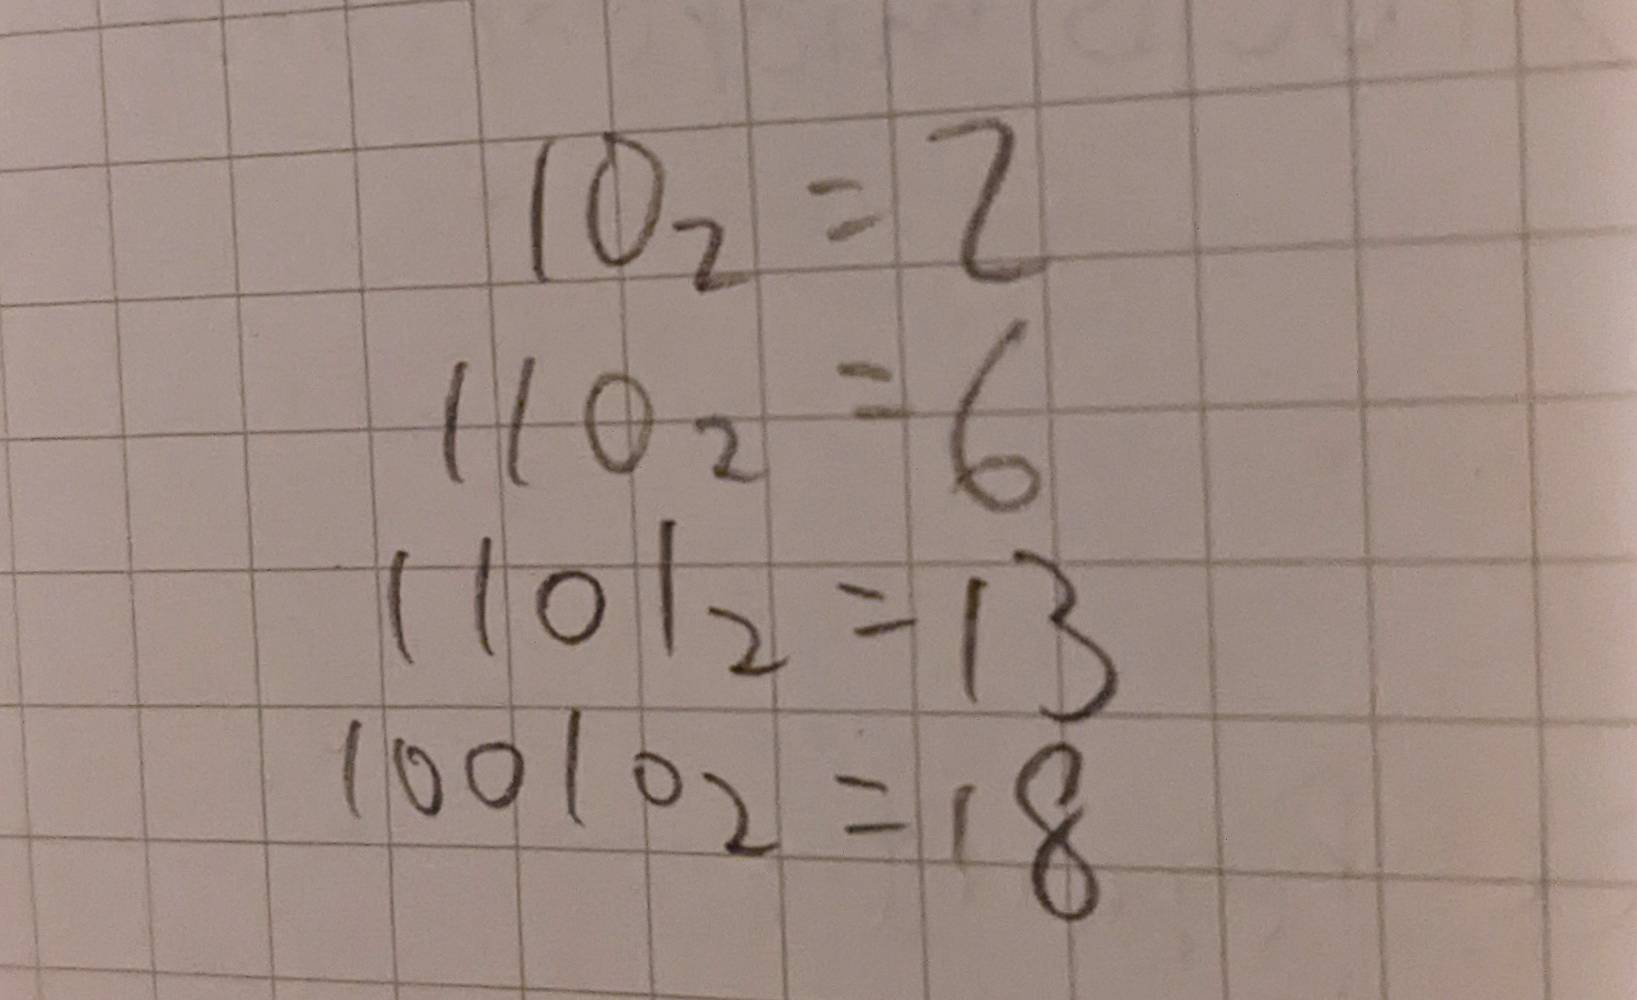 10₂ = 2
110₂ = 6
1101₂ = 13
10010₂ = 18